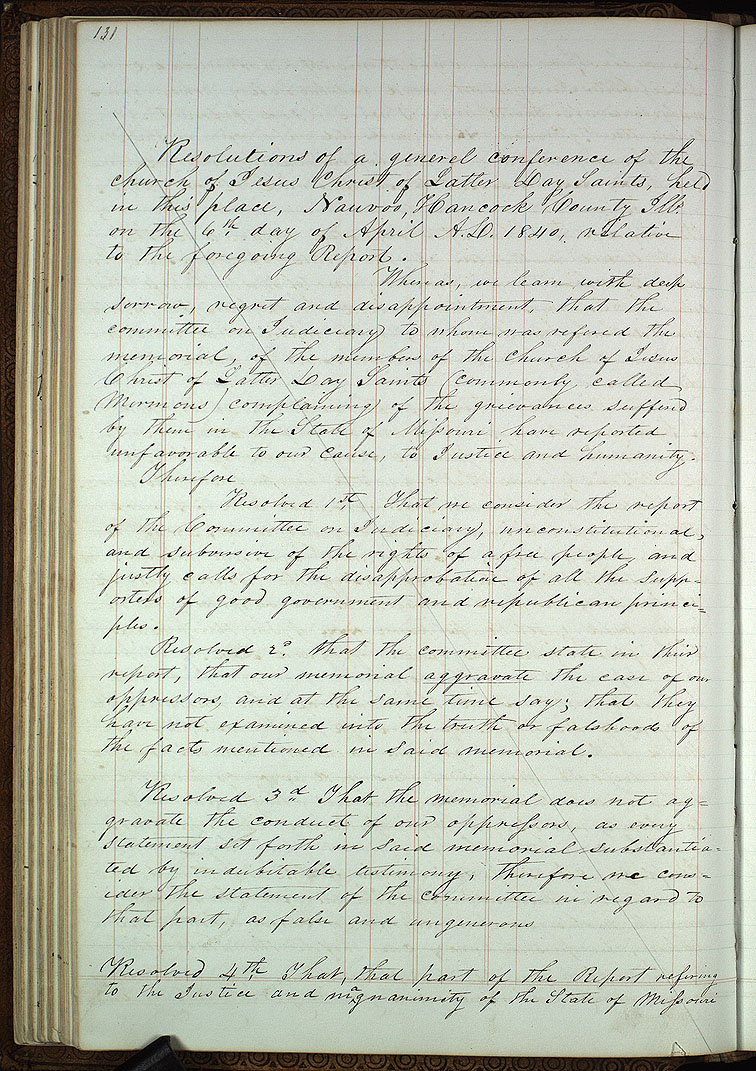 131
Resolutions of a general conference of the
church of Jesus Christ of Latter Day Saints, held
in this place, Nauvoo, Hancock County Ill.
on the 6th day of April A.D. 1840, relative
to the foregoing Report.
Whereas, we learn with deep
sorrow, regret and disappointment, that the
committee on Judiciary to whom was refered the
memorial, of the members of the church of Jesus
Christ of Latter Day Saints (commonly called
Mormons) complaining of the grievances suffered
by them in the State of Missouri have reported
unfavorable to our cause, to Justice and humanity.
Therefore
Resolved 1st, That we consider the report
of the Committee on Judiciary, unconstitutional,
and subversive of the rights of a free people, and
justly calls for the disapprobation of all the supp-
orters of good government and republican princi=
ples.
Resolved 2d. that the committee state in their
report, that our memorial aggravate the case of our
oppressors, and at the same time say; that they
have not examined into the truth or falshoods of
the facts mentioned in said memorial.
Resolved 3d That the memorial does not ag=
gravate the conduct of our oppressors, as every
statement set forth in said memorial substantia=
ted by indubitable testimony; therefore we cons=
ider the statement of the committee in regard to
that part, as false and ungenerous
Resolved 4th That, that part of the Report refering
to the Justice and magnanimity of the State of Missouri